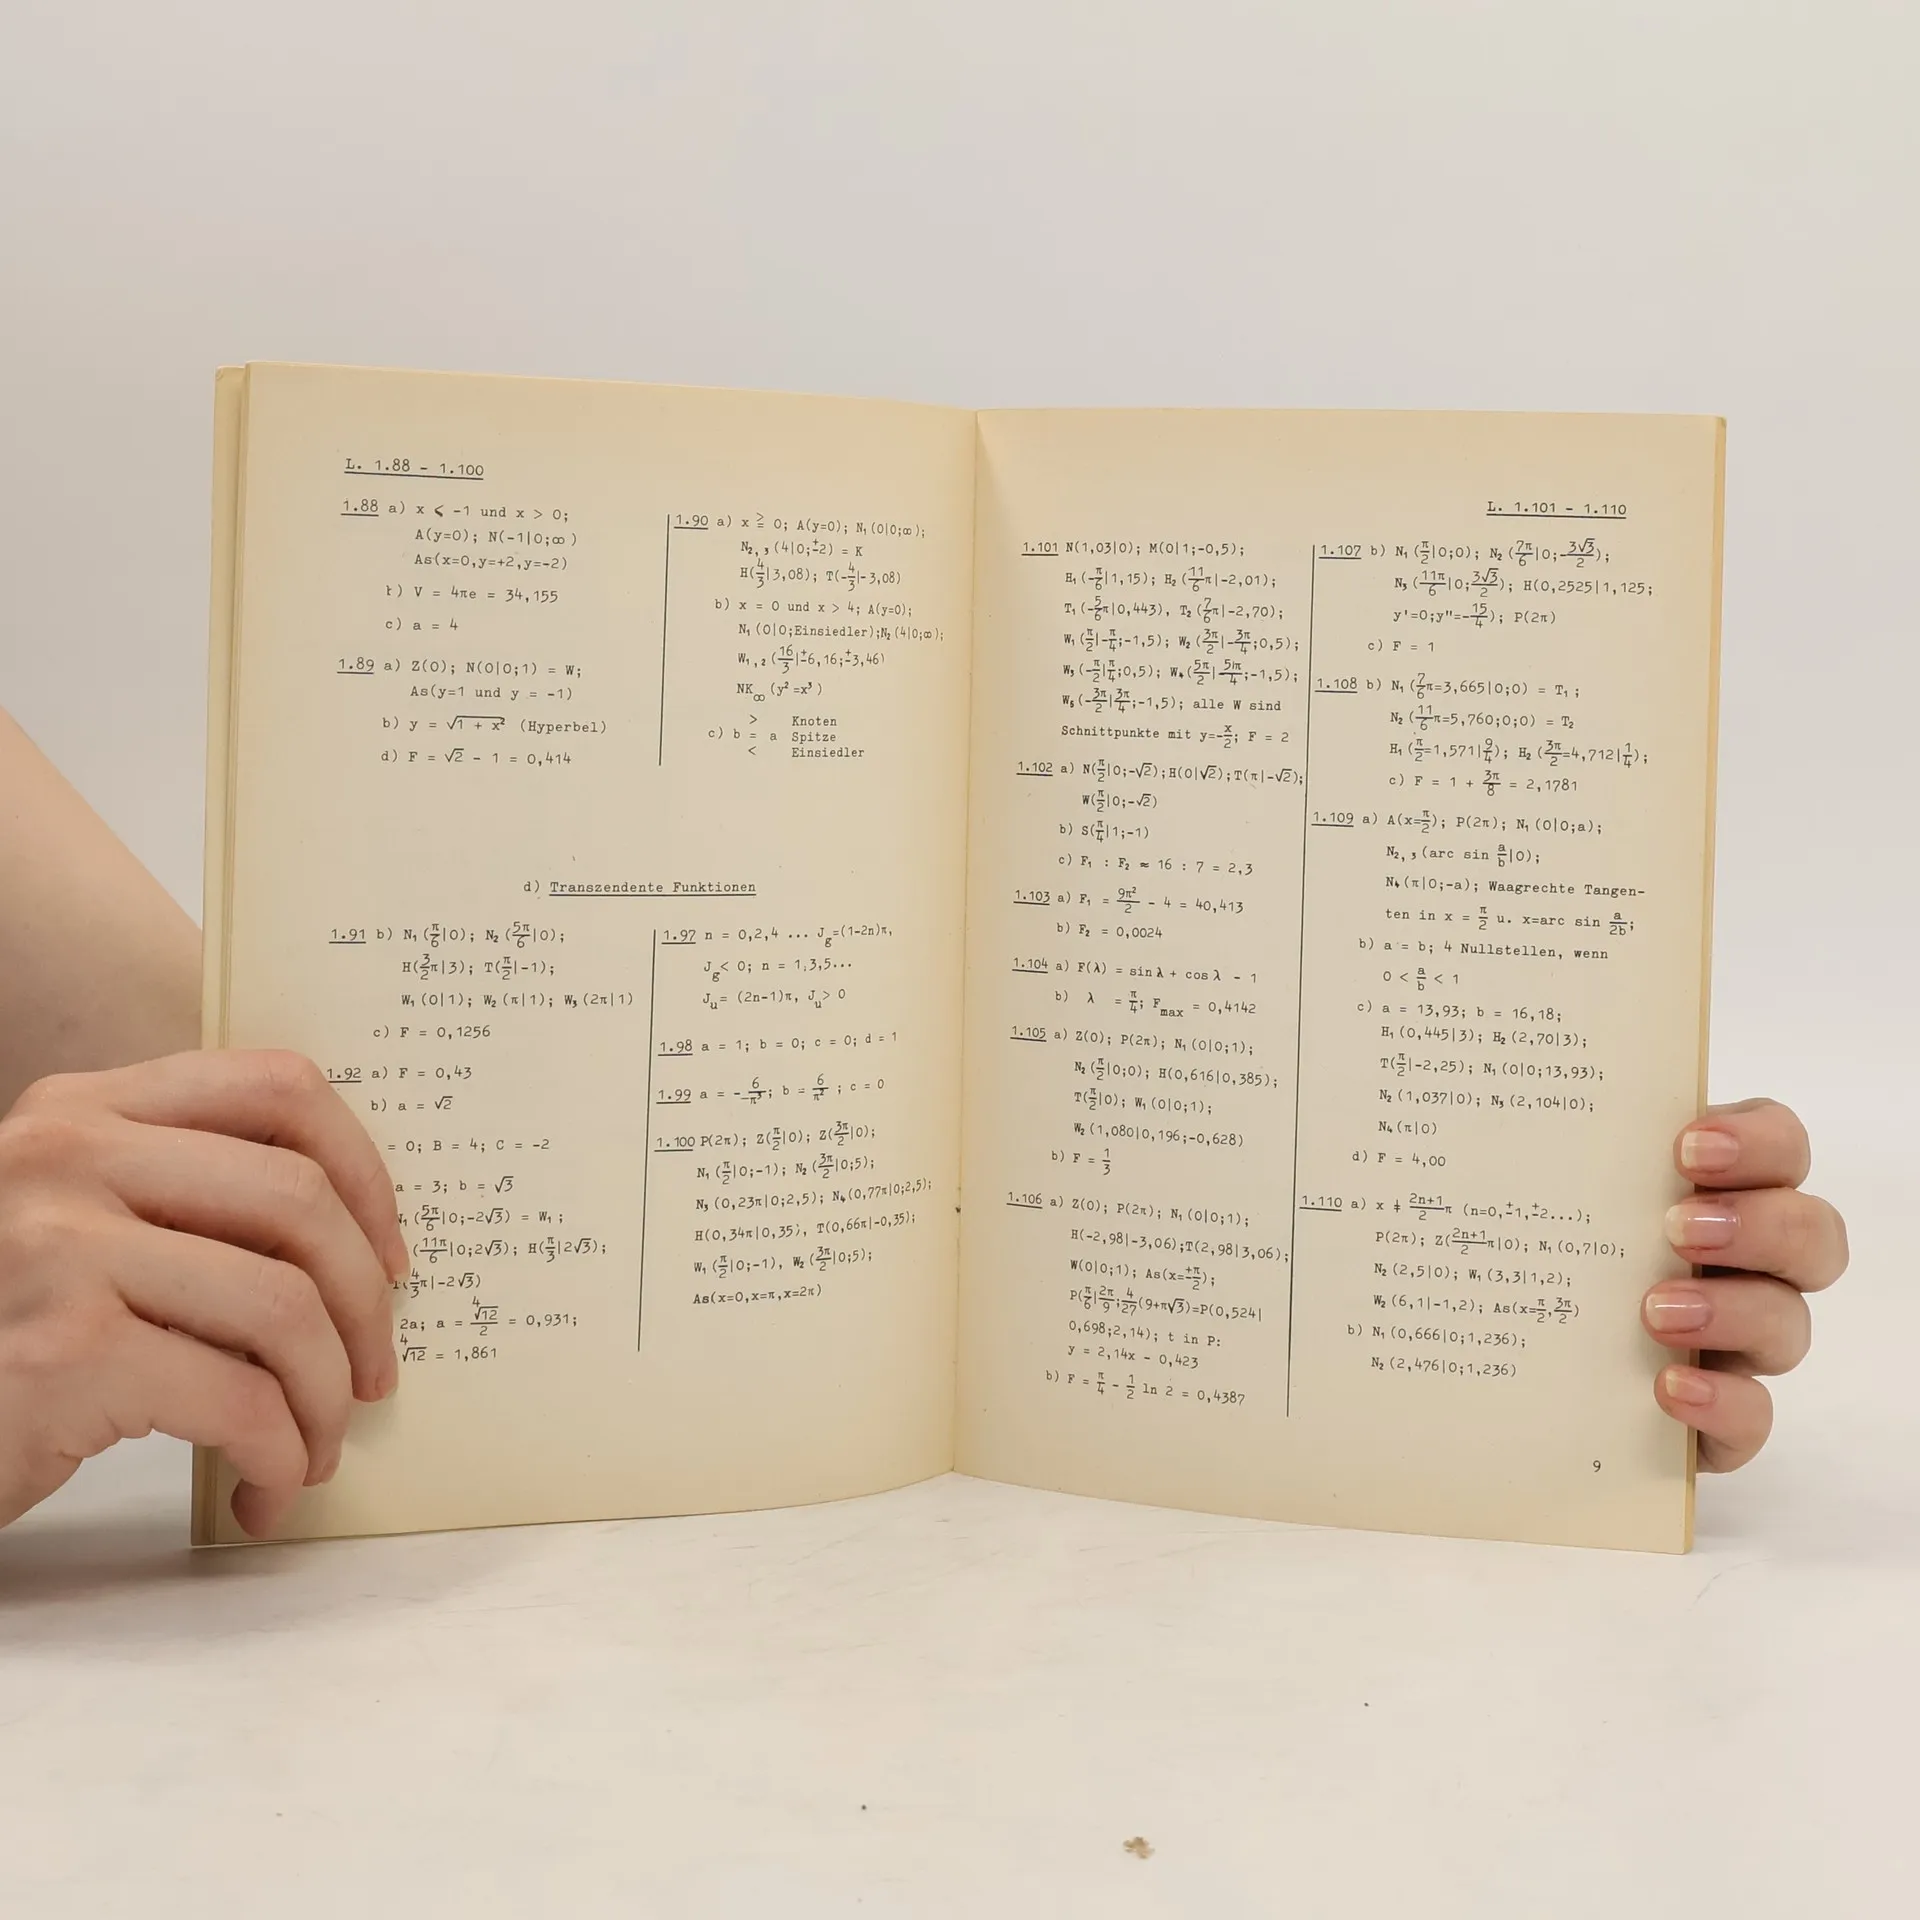 L. 1.88 - 1.100
1.88 a) x < -1 und x > 0;
A(y=0); N(-1|0;∞)
As(x=0,y=+2,y=-2)
b) V = 4πe = 34,155
c) a = 4
1.89 a) Z(0); N(0|0;1) = W;
As(y=1 und y = -1)
b) y = √(1 + x²) (Hyperbel)
d) F = √2 - 1 = 0,414
1.90 a) x ≧ 0; A(y=0); N₁(0|0;∞);
N₂,₃(4|0;±2) = K
H(4/3|3,08); T(-4/3|-3,08)
b) x = 0 und x > 4; A(y=0);
N₁(0|0;Einsiedler);N₂(4|0;∞);
W₁,₂(16/3|±6,16;±3,46)
NK∞(y²=x³)
> Knoten
c) b = a Spitze
< Einsiedler
d) Transzendente Funktionen
1.91 b) N₁(π/6|0); N₂(5π/6|0);
H(3/2π|3); T(π/2|-1);
W₁(0|1); W₂(π|1); W₃(2π|1)
c) F = 0,1256
1.92 a) F = 0,43
b) a = √2
= 0; B = 4; C = -2
a = 3; b = √3
N₁(5π/6|0;-2√3) = W₁;
(11π/6|0;2√3); H(π/3|2√3);
(4/3π|-2√3)
2a; a = ⁴√12/2 = 0,931;
⁴√12 = 1,861
1.97 n = 0,2,4 ... J_g=(1-2n)π,
J_g< 0; n = 1,3,5...
J_u= (2n-1)π, J_u> 0
1.98 a = 1; b = 0; c = 0; d = 1
1.99 a = -6/π³; b = 6/π²; c = 0
1.100 P(2π); Z(π/2|0); Z(3π/2|0);
N₁(π/2|0;-1); N₂(3π/2|0;5);
N₃(0,23π|0;2,5); N₄(0,77π|0;2,5);
H(0,34π|0,35), T(0,66π|-0,35);
W₁(π/2|0;-1), W₂(3π/2|0;5);
As(x=0,x=π,x=2π)
L. 1.101 - 1.110
1.101 N(1,03|0); M(0|1;-0,5);
H₁(-π/6|1,15); H₂(11/6π|-2,01);
T₁(-5/6π|0,443), T₂(7/6π|-2,70);
W₁(π/2|-π/4;-1,5); W₂(3π/2|-3π/4;0,5);
W₃(-π/2|π/4;0,5); W₄(5π/2|-5π/4;-1,5);
W₅(-3π/2|3π/4;-1,5); alle W sind
Schnittpunkte mit y=-x/2; F = 2
1.102 a) N(π/2|0;-√2);H(0|√2);T(π|-√2);
W(π/2|0;-√2)
b) S(π/4|1;-1)
c) F₁ : F₂ ≈ 16 : 7 = 2,3
1.103 a) F₁ = 9π²/2 - 4 = 40,413
b) F₂ = 0,0024
1.104 a) F(λ) = sinλ + cosλ - 1
b) λ = π/4; F_max = 0,4142
1.105 a) Z(0); P(2π); N₁(0|0;1);
N₂(π/2|0;0); H(0,616|0,385);
T(π/2|0); W₁(0|0;1);
W₂(1,080|0,196;-0,628)
b) F = 1/3
1.106 a) Z(0); P(2π); N₁(0|0;1);
H(-2,98|-3,06);T(2,98|3,06);
W(0|0;1); As(x=±π/2);
P(π/6|2π/9;4/27(9+π√3)=P(0,524|
0,698;2,14); t in P:
y = 2,14x - 0,423
b) F = π/4 - 1/2 ln 2 = 0,4387
1.107 b) N₁(π/2|0;0); N₂(7π/6|0;-3√3/2);
N₃(11π/6|0;3√3/2); H(0,2525|1,125;
y'=0;y"=-15/4); P(2π)
c) F = 1
1.108 b) N₁(7/6π=3,665|0;0) = T₁;
N₂(11/6π=5,760;0;0) = T₂
H₁(π/2=1,571|9/4); H₂(3π/2=4,712|1/4);
c) F = 1 + 3π/8 = 2,1781
1.109 a) A(x=π/2); P(2π); N₁(0|0;a);
N₂,₃(arc sin a/b|0);
N₄(π|0;-a); Waagrechte Tangen-
ten in x = π/2 u. x=arc sin a/2b;
b) a = b; 4 Nullstellen, wenn
0 < a/b < 1
c) a = 13,93; b = 16,18;
H₁(0,445|3); H₂(2,70|3);
T(π/2|-2,25); N₁(0|0;13,93);
N₂(1,037|0); N₃(2,104|0);
N₄(π|0)
d) F = 4,00
1.110 a) x ≠ 2n+1/2π (n=0,±1,±2...);
P(2π); Z(2n+1/2π|0); N₁(0,7|0);
N₂(2,5|0); W₁(3,3|1,2);
W₂(6,1|-1,2); As(x=π/2,3π/2)
b) N₁(0,666|0;1,236);
N₂(2,476|0;1,236)
9